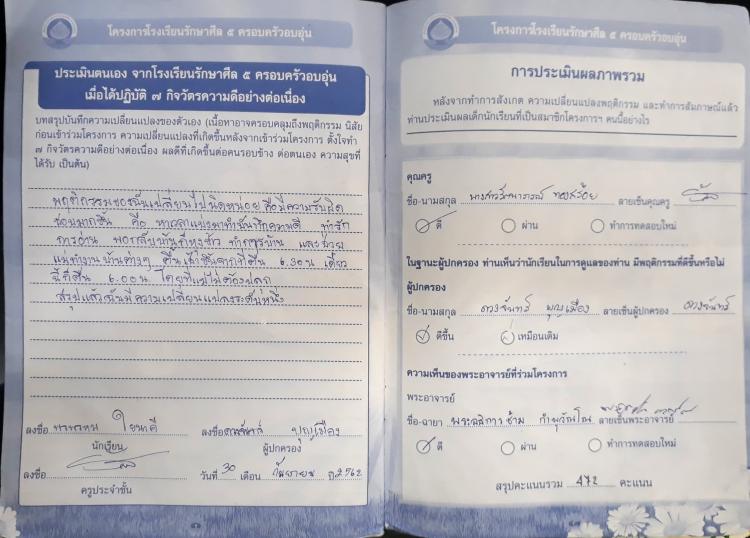 โครงการโรงเรียนรักษาศีล ๕ ครอบครัวอบอุ่น
ประเมินตนเอง จากโรงเรียนรักษาศีล ๕ ครอบครัวอบอุ่น
เมื่อได้ปฏิบัติ ๗ กิจวัตรความดีอย่างต่อเนื่อง
บทสรุปบันทึกความเปลี่ยนแปลงของตัวเอง (เนื้อหาอาจครอบคลุมถึงพฤติกรรม นิสัย
ก่อนเข้าร่วมโครงการ ความเปลี่ยนแปลงที่เกิดขึ้นหลังจากเข้าร่วมโครงการ ตั้งใจทำ
๗ กิจวัตรความดีอย่างต่อเนื่อง ผลดีที่เกิดขึ้นต่อคนรอบข้าง ต่อตนเอง ความสุขที่
ได้รับ เป็นต้น)
พฤติกรรมของฉันเปลี่ยนไปนิดหน่อย คือมีความรับผิด
ชอบมากขึ้น คือ หาเวลาแบ่งมาทำบันทึกความดี ทำรัก
การอ่าน พอกลับบ้านก็หุงข้าว ทำการบ้าน และช่วย
แม่ทำงานบ้านต่างๆ ตื่นเช้าขึ้นจากที่ตื่น 6.30น เดี๋ยว
นี้ก็ตื่น 6.00น โดยที่แม่ไม่ต้องปลุก
สรุปแล้วฉันมีความเปลี่ยนแปลงระดับหนึ่ง
ลงชื่อ
นักเรียน
ลงชื่อ ดวงจันทร์ บุญเมือง
ผู้ปกครอง
ลงชื่อ
ครูประจำชั้น
วันที่ 30 เดือน กันยายน ปี 2562
โครงการโรงเรียนรักษาศีล ๕ ครอบครัวอบอุ่น
การประเมินผลภาพรวม
หลังจากทำการสังเกต ความเปลี่ยนแปลงพฤติกรรม และทำการสัมภาษณ์แล้ว
ท่านประเมินผลเด็กนักเรียนที่เป็นสมาชิกโครงการฯ คนนี้อย่างไร
คุณครู
ชื่อ-นามสกุล นางสาว ทองสร้อย ลายเซ็นคุณครู
ดี ผ่าน ทำการทดสอบใหม่
ในฐานะผู้ปกครอง ท่านเห็นว่านักเรียนในการดูแลของท่าน มีพฤติกรรมที่ดีขึ้นหรือไม่
ผู้ปกครอง
ชื่อ-นามสกุล ดวงจันทร์ บุญเมือง ลายเซ็นผู้ปกครอง ดวงจันทร์
ดีขึ้น เหมือนเดิม
ความเห็นของพระอาจารย์ที่ร่วมโครงการ
พระอาจารย์
ชื่อ-ฉายา ลายเซ็นพระอาจารย์
ดี ผ่าน ทำการทดสอบใหม่
สรุปคะแนนรวม 472 คะแนน